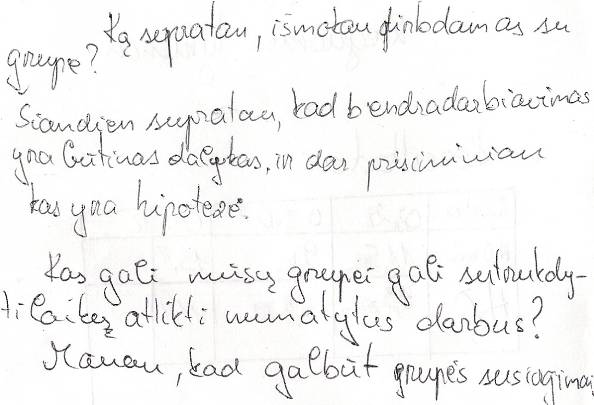 Ką supratau, išmokau dirbdamas su
grupe?
Šiandien supratau, kad bendradarbiavimas
yra būtinas dalykas, ir dar prisiminiau
kas yra hipotezė.
Kas gali mūsų grupei gali sutrukdy-
ti laiku atlikti numatytus darbus?
Manau, kad galbūt grupės susirgimai